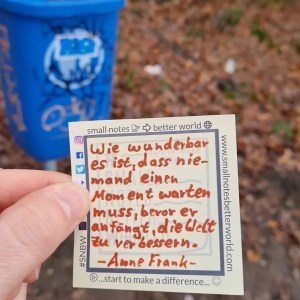 small notes better world
Wie wunderbar
es ist, dass nie-
mand einen
Moment warten
muss, bevor er
anfängt, die Welt
zu verbessern.
- Anne Frank -
...start to make a difference...
#SNBW
www.smallnotesbetterworld.com